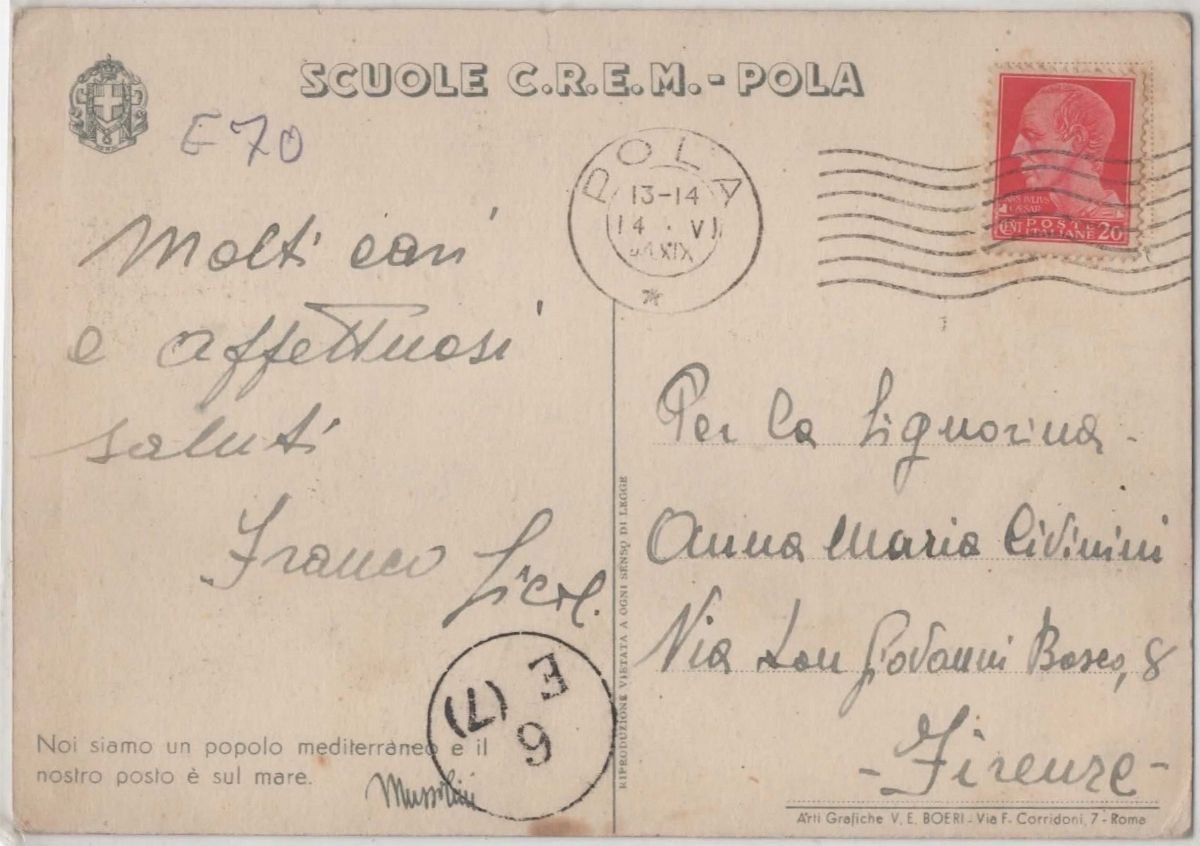 SCUOLE C.R.E.M. - POLA
E 70
POLA
13-14
14 · VI
XIX
IVLIVS
CAESAR
POSTE
CENT ITALIANE 20
Molti cari
e affettuosi
saluti
Franco
Per la Signorina
Anna Maria Cividini
Via Don Giovanni Bosco, 8
- Firenze -
E
(7)
6
Noi siamo un popolo mediterràneo e il
nostro posto è sul mare.
Mussolini
RIPRODUZIONE VIETATA A OGNI SENSO DI LEGGE
Arti Grafiche V. E. BOERI - Via F. Corridoni, 7 - Roma